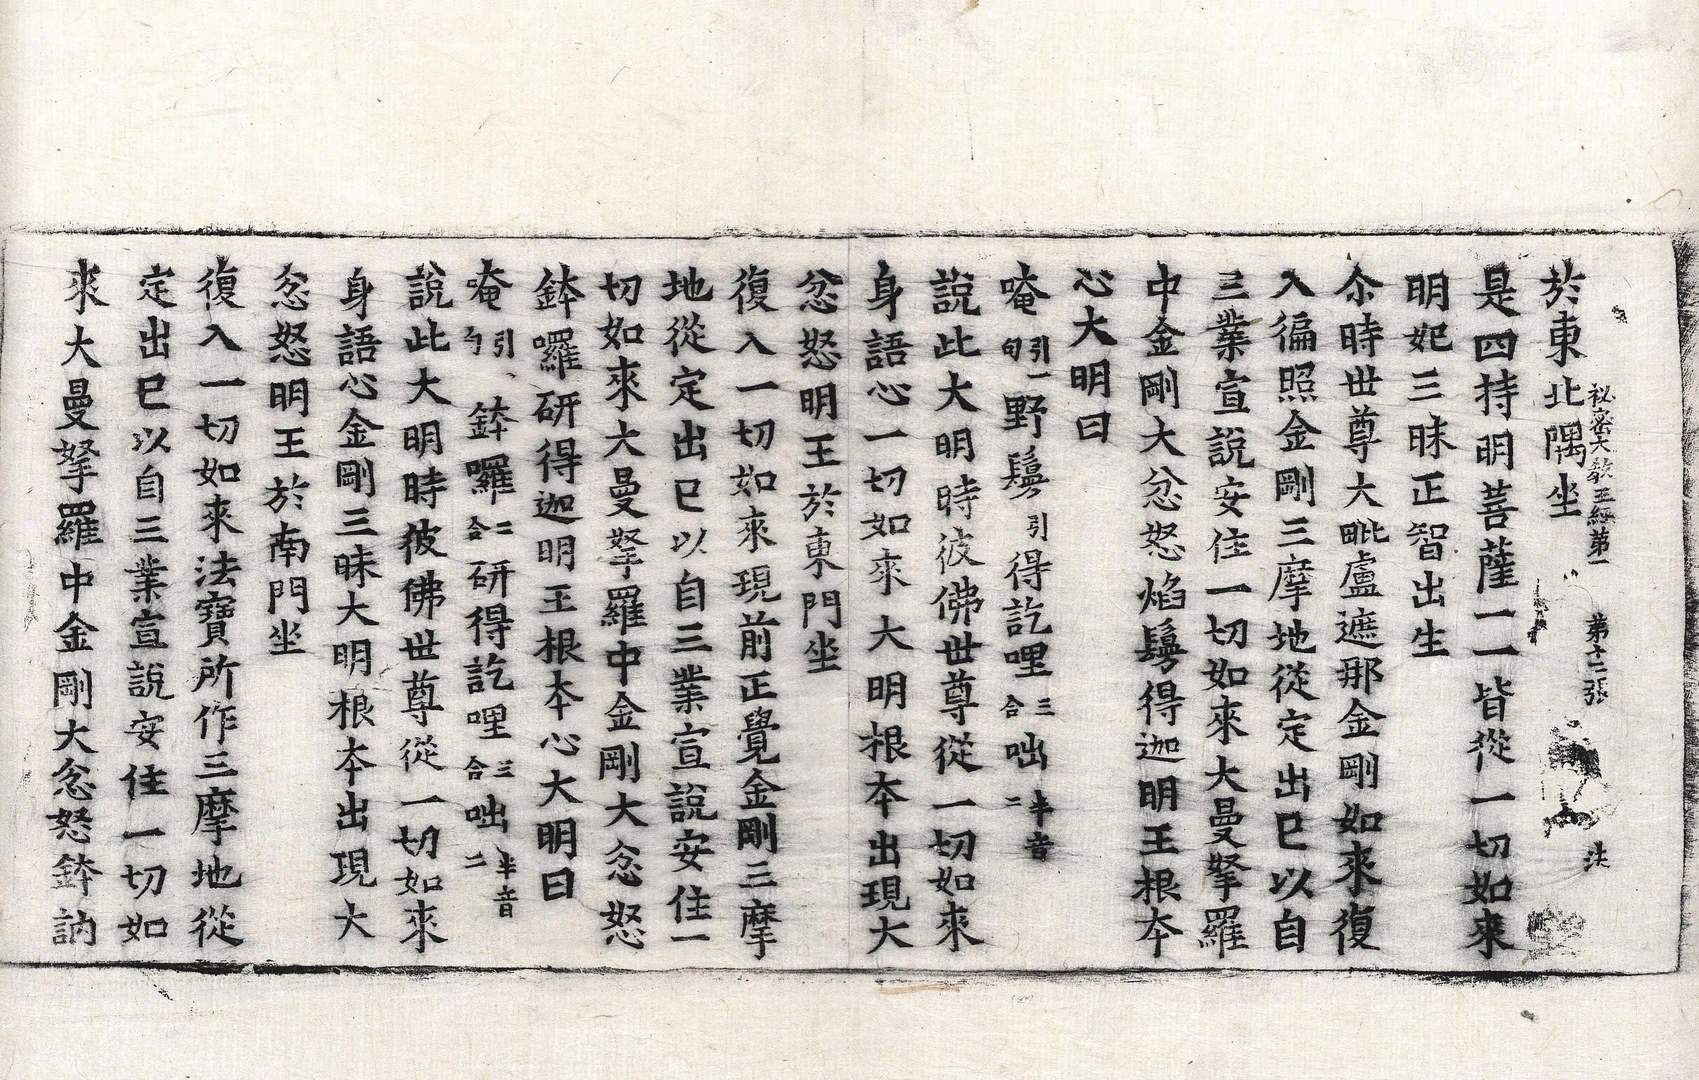 於東北隅坐
秘密大教王經第一　第十二張　法
是四持明菩薩一一皆從一切如來
明妃三昧正智出生
尒時世尊大毗盧遮那金剛如來復
入徧照金剛三摩地從定出已以自
三業宣說安住一切如來大曼拏羅
中金剛大忿怒焰鬘得迦明王根本
心大明曰
唵引一句野鬘引得訖哩三合咄半音二
說此大明時彼佛世尊從一切如來
身語心一切如來大明根本出現大
忿怒明王於東門坐
復入一切如來現前正覺金剛三摩
地從定出已以自三業宣說安住一
切如來大曼拏羅中金剛大忿怒
鉢囉研得迦明王根本心大明曰
唵引、句鉢囉二合研得訖哩三合咄半音二
說此大明時彼佛世尊從一切如來
身語心金剛三昧大明根本出現大
忿怒明王於南門坐
復入一切如來法寶所作三摩地從
定出已以自三業宣說安住一切如
來大曼拏羅中金剛大忿怒鉢訥